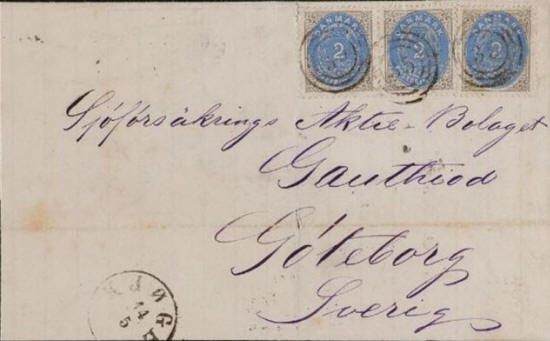 DANMARK 2 DANMARK 2 DANMARK 2
Sjöförsäkrings Aktie-Bolaget
Gauthiod
Göteborg
Sverig
KJØGE
14
5